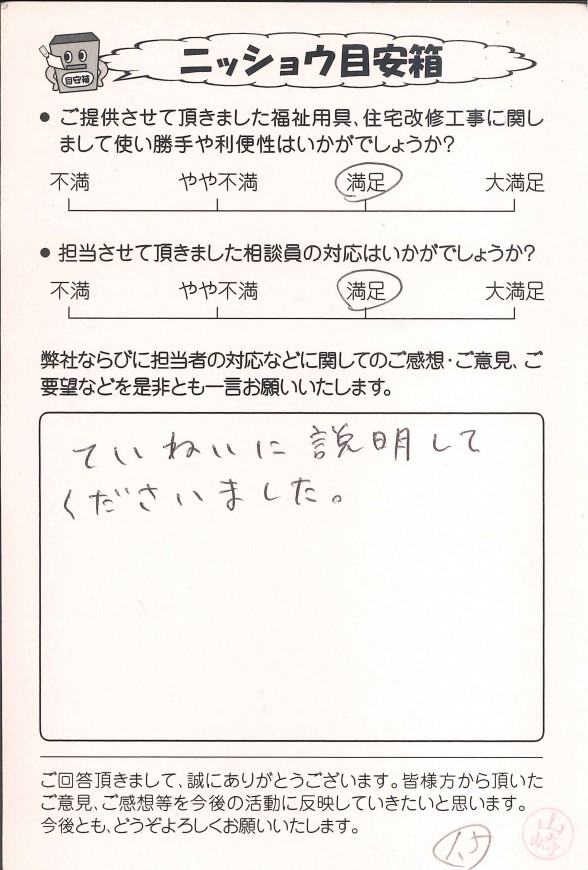 目安箱
ニッショウ目安箱
● ご提供させて頂きました福祉用具、住宅改修工事に関し
まして使い勝手や利便性はいかがでしょうか?
不満 やや不満 満足 大満足
● 担当させて頂きました相談員の対応はいかがでしょうか?
不満 やや不満 満足 大満足
弊社ならびに担当者の対応などに関してのご感想・ご意見、ご
要望などを是非とも一言お願いいたします。
ていねいに説明して
くださいました。
ご回答頂きまして、誠にありがとうございます。皆様方から頂いた
ご意見、ご感想等を今後の活動に反映していきたいと思います。
今後とも、どうぞよろしくお願いいたします。
山崎